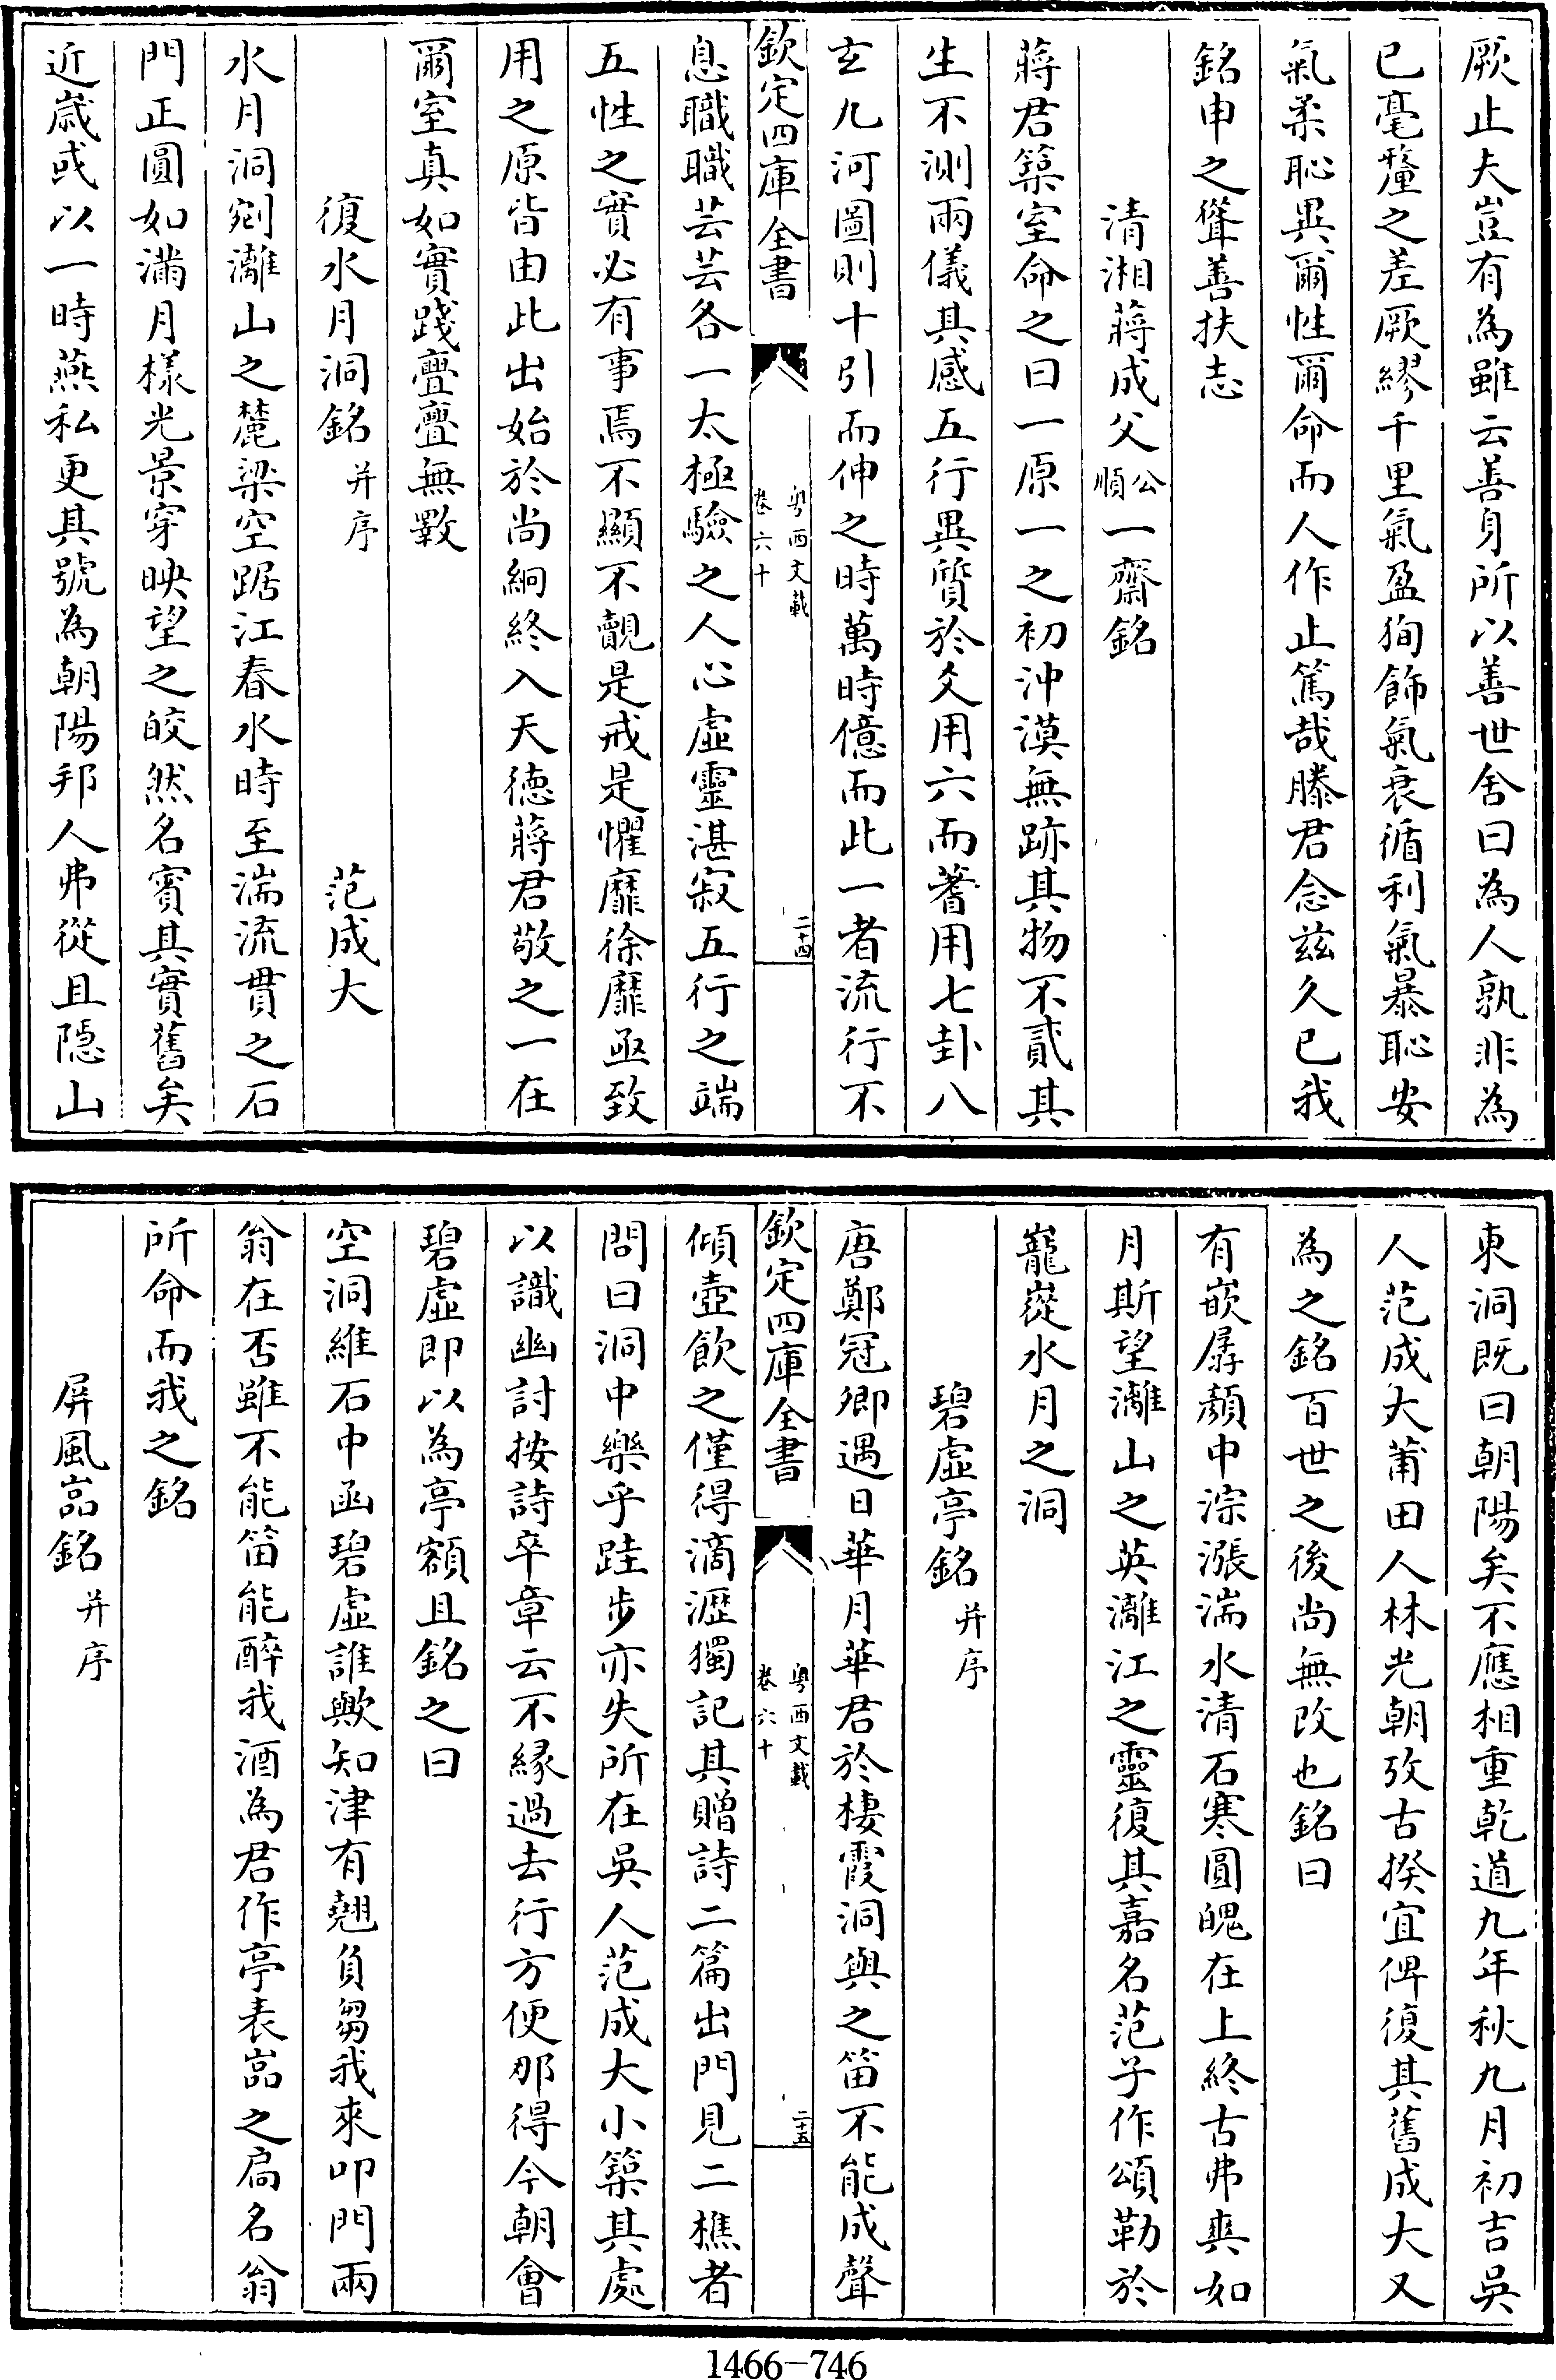 厥止夫豈有為雖云善身所以善世舍曰為人孰非為
已毫釐之差厥繆千里氣盈狥飾氣衰循利氣暴恥安
氣柔恥異爾性爾命而人作止篤哉滕君念兹久已我
銘申之聳善扶志
清湘蔣成父公順一齋銘
蔣君築室命之曰一原一之初沖漠無跡其物不貳其
生不測兩儀其感五行異質於爻用六而蓍用七卦八
玄九河圖則十引而伸之時萬時億而此一者流行不
欽定四庫全書
粤西文載
卷六十
二十四
息職職芸芸各一太極驗之人心虛靈湛寂五行之端
五性之實必有事焉不顯不覿是戒是懼靡徐靡亟致
用之原皆由此出始於尚絅終入天德蔣君敬之一在
爾室真如實踐亹亹無斁
復水月洞銘并序
范成大
水月洞剜灕山之麓梁空踞江春水時至湍流貫之石
門正圓如滿月樣光景穿映望之皎然名賓其實舊矣
近嵗或以一時燕私更其號為朝陽邦人弗從且隱山
東洞既曰朝陽矣不應相重乾道九年秋九月初吉吳
人范成大莆田人林光朝攷古揆宜俾復其舊成大又
為之銘百世之後尚無改也銘曰
有嵌孱顔中淙漲湍水清石寒圓魄在上終古弗爽如
月斯望灕山之英灕江之靈復其嘉名范子作頌勒於
巃嵸水月之洞
碧虛亭銘并序
唐鄭冠卿遇日華月華君於棲霞洞與之笛不能成聲
欽定四庫全書
粤西文載
卷六十
二十五
傾壺飲之僅得滴瀝獨記其贈詩二篇出門見二樵者
問曰洞中樂乎跬步亦失所在吳人范成大小築其處
以識幽討按詩卒章云不緣過去行方便那得今朝會
碧虛即以為亭額且銘之曰
空洞維石中函碧虛誰歟知津有翹負芻我來叩門兩
翁在否雖不能笛能醉我酒為君作亭表嵓之扃名翁
所命而我之銘
屏風嵓銘并序
1466-746